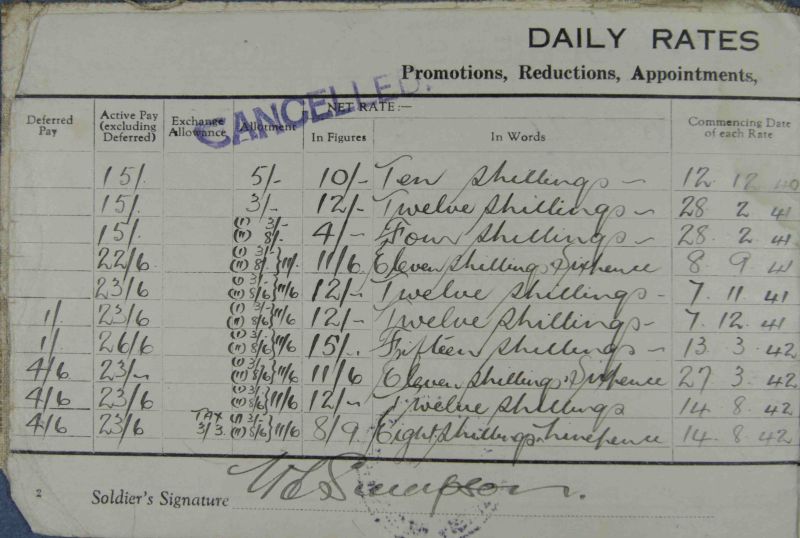 DAILY RATES
Promotions, Reductions, Appointments,
CANCELLED.
Deferred Pay
Active Pay (excluding Deferred)
Exchange Allowance
Allotment
NET RATE:—
In Figures
In Words
Commencing Date of each Rate
15/. 5/- 10/- Ten shillings — 12. 12 40
15/. 3/- 12/- Twelve shillings — 28. 2 41
15/. (I) 3/- (II) 8/- 4/- Four shillings — 28. 2. 41
22/6 (I) 3/- (II) 8/- } 11/. 11/6 Eleven shillings & Sixpence 8. 9 41
23/6 (I) 3/- (II) 8/6 } 11/6 12/- Twelve shillings - 7. 11. 41
1/ 23/6 (I) 3/- (II) 8/6 } 11/6 12/- Twelve shillings - 7. 12. 41
1/ 26/6 (I) 3/- (II) 8/6 } 11/6 15/. Fifteen shillings — 13. 3. 42
4/6 23/- (I) 3/- (II) 8/6 } 11/6 11/6 Eleven shillings & Sixpence 27. 3. 42
4/6 23/6 (I) 3/- (II) 8/6 } 11/6 12/- Twelve shillings 14. 8. 42
4/6 23/6 TAX 3/3. (I) 3/- (II) 8/6 } 11/6 8/9. Eight shillings & Ninepence 14. 8. 42
2 Soldier's Signature Simpson.